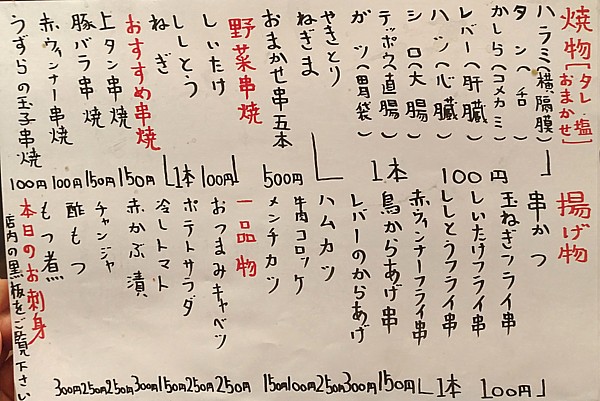 焼物［タレ・塩 おまかせ］
ハラミ（横隔膜）
タン（舌）
かしら（コメカミ）
レバー（肝臓）
ハツ（心臓）
シロ（大腸）
テッポウ（直腸）
ガツ（胃袋）
やきとり
ねぎま
1本 100円
おまかせ串五本 500円
野菜串焼
しいたけ
ししとう
ねぎ
1本 100円
おすすめ串焼
上タン串焼 150円
豚バラ串焼 150円
赤ウィンナー串焼 100円
うずらの玉子串焼 100円
揚げ物
串かつ
玉ねぎフライ串
しいたけフライ串
ししとうフライ串
赤ウィンナーフライ串
1本 100円
鳥からあげ串 150円
レバーのからあげ 300円
ハムカツ 250円
牛肉コロッケ 100円
メンチカツ 150円
一品物
おつまみキャベツ 250円
ポテトサラダ 250円
冷しトマト 150円
赤かぶ漬 300円
チャンジャ 250円
酢もつ 250円
もつ煮 300円
本日のお刺身
店内の黒板をご覧下さい